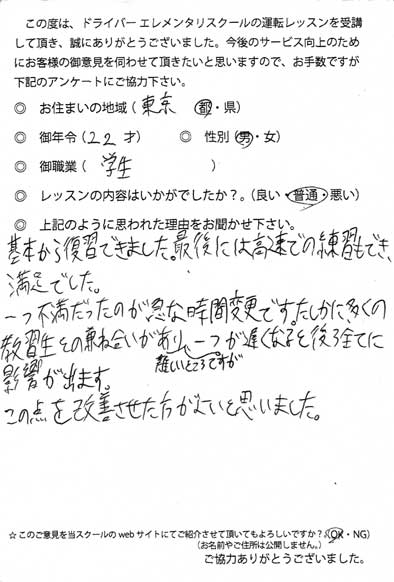 この度は、ドライバー エレメンタリスクールの運転レッスンを受講
して頂き、誠にありがとうございました。今後のサービス向上のため
にお客様の御意見を伺わせて頂きたいと思いますので、お手数ですが
下記のアンケートにご協力下さい。
◎ お住まいの地域（東京 都・県）
◎ 御年令（22 才） ◎ 性別（男・女）
◎ 御職業（学生）
◎ レッスンの内容はいかがでしたか？。（良い・普通・悪い）
◎ 上記のように思われた理由をお聞かせ下さい。
基本から復習できました。最後には高速での練習もでき、
満足でした。
一つ不満だったのが急な時間変更です。たしかに多くの
教習生との兼ね合いがあり、一つが遅くなると後ろ全てに
難しいところですが
影響が出ます。
この点を改善させた方がよいと思いました。
☆このご意見を当スクールのwebサイトにてご紹介させて頂いてもよろしいですか？（OK・NG）
（お名前やご住所は公開しません。）
ご協力ありがとうございました。